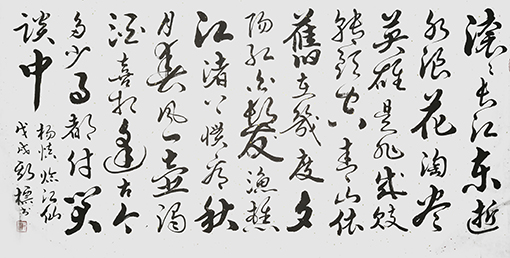 滚々长江东逝
水浪花淘尽
英雄是非成败
转头空青山依
舊在幾度夕
阳红白髮渔樵
江渚上惯看秋
月春风一壶浊
酒喜相逢古今
多少事都付笑
谈中
杨慎临江仙
戊戌标书